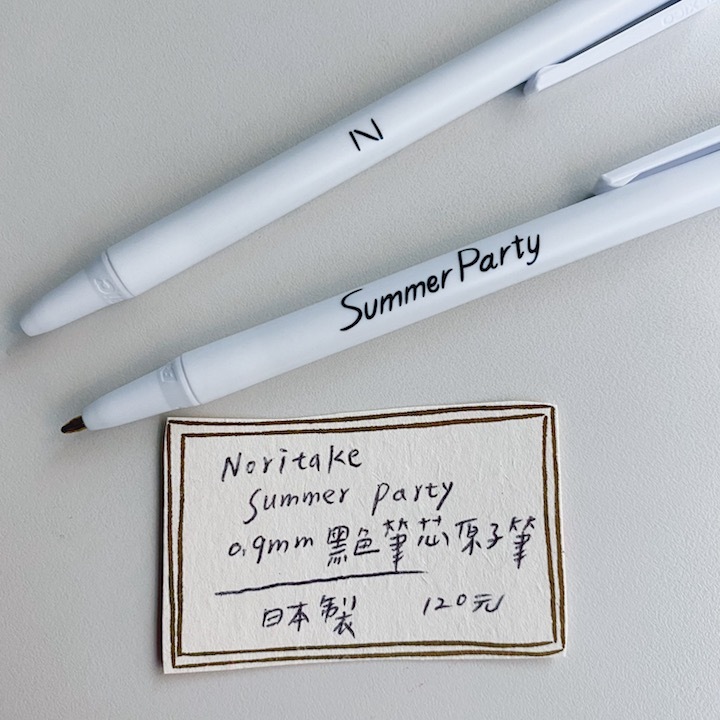 N
Summer Party
Noritake
Summer Party
0.9mm 黑色筆芯原子筆
日本製 120元